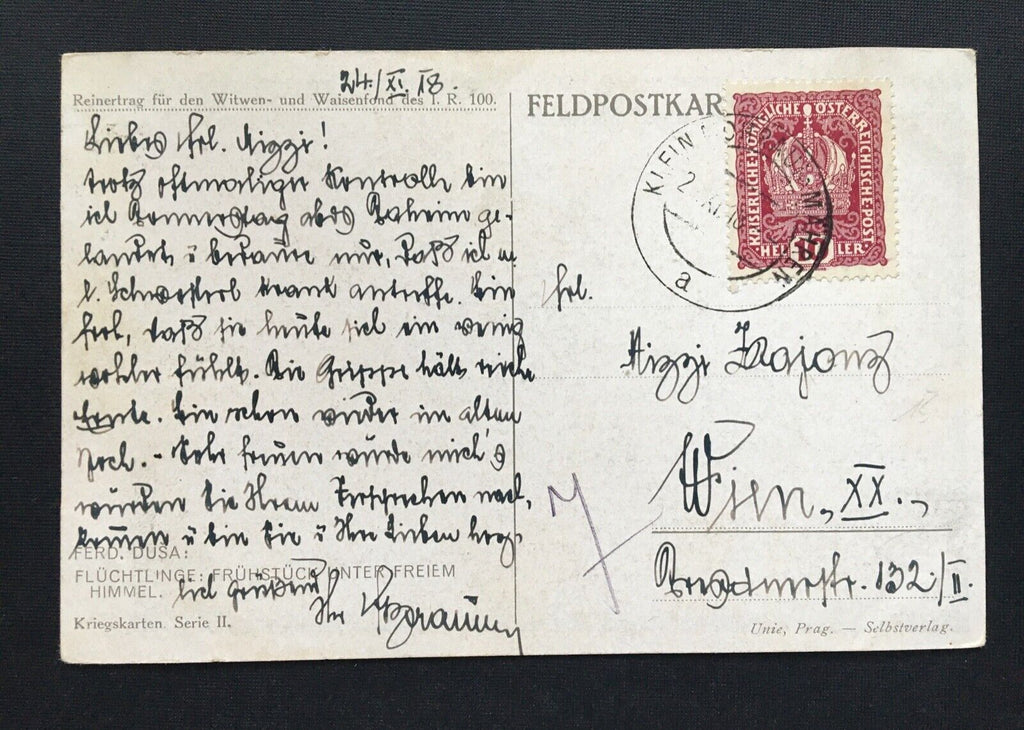 24./XI. 18.
Reinertrag für den Witwen- und Waisenfond des I. R. 100.
Liebes Frl. Mizzi!
trotz oftmaliger Kontrolle bin
ich Donnerstag abds daheim ge-
landet u bedaure nur, daß ich m
l. Schwesterl krank antreffe. Bin
froh, daß sie heute sich ein wenig
wohler fühlt. Die Grippe hält reiche
Ernte. Bin schon wieder im alten
Joch. - Sehr freuen würde mich's
würden Sie Ihrem Versprechen nach-
kommen u bin Sie u Ihre Lieben herz-
FERD. DUSA:
FLÜCHTLINGE: FRÜHSTÜCK UNTER FREIEM
HIMMEL.
lich grüßend
Ihr
Kriegskarten. Serie II.
FELDPOSTKAR
KAISERLICHE KÖNIGLICHE ÖSTERREICHISCHE POST
15
HELLER
KLEIN MÄHREN
a
Frl.
Mizzi Zajonz
Wien, XX.,
132/II.
Unie, Prag. — Selbstverlag.